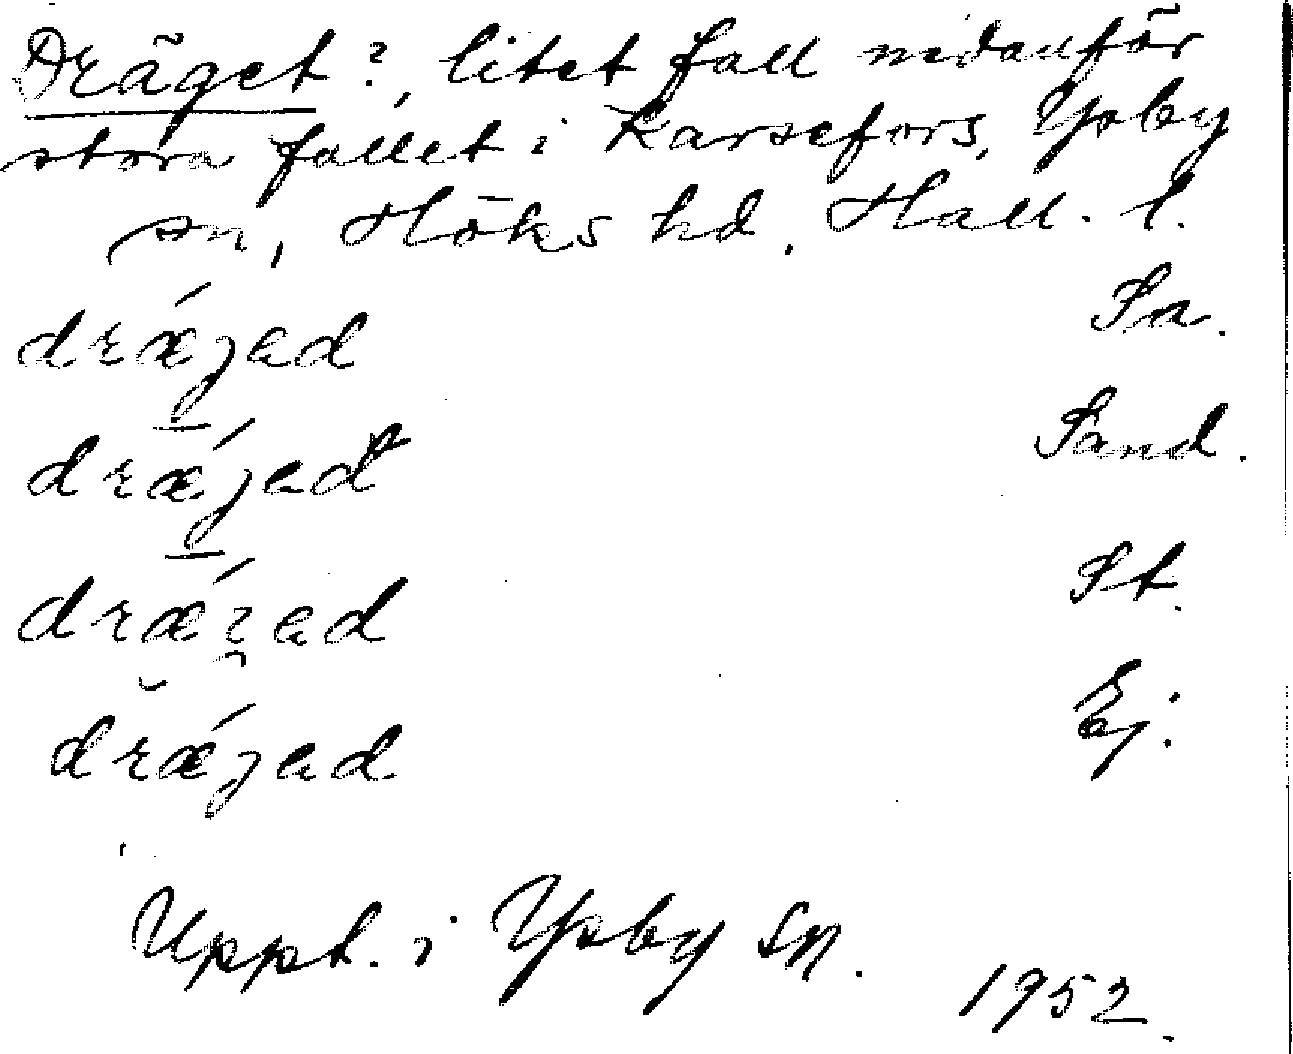 Dräget?, litet fall nedanför
stora fallet i Karsefors, Ysby
sn, Höks hd. Hall. l.
drǽjad Sa.
drǽjad Sand.
drǽ ad St.
drǽjad Ej.
Uppt. i Ysby sn.
1952.